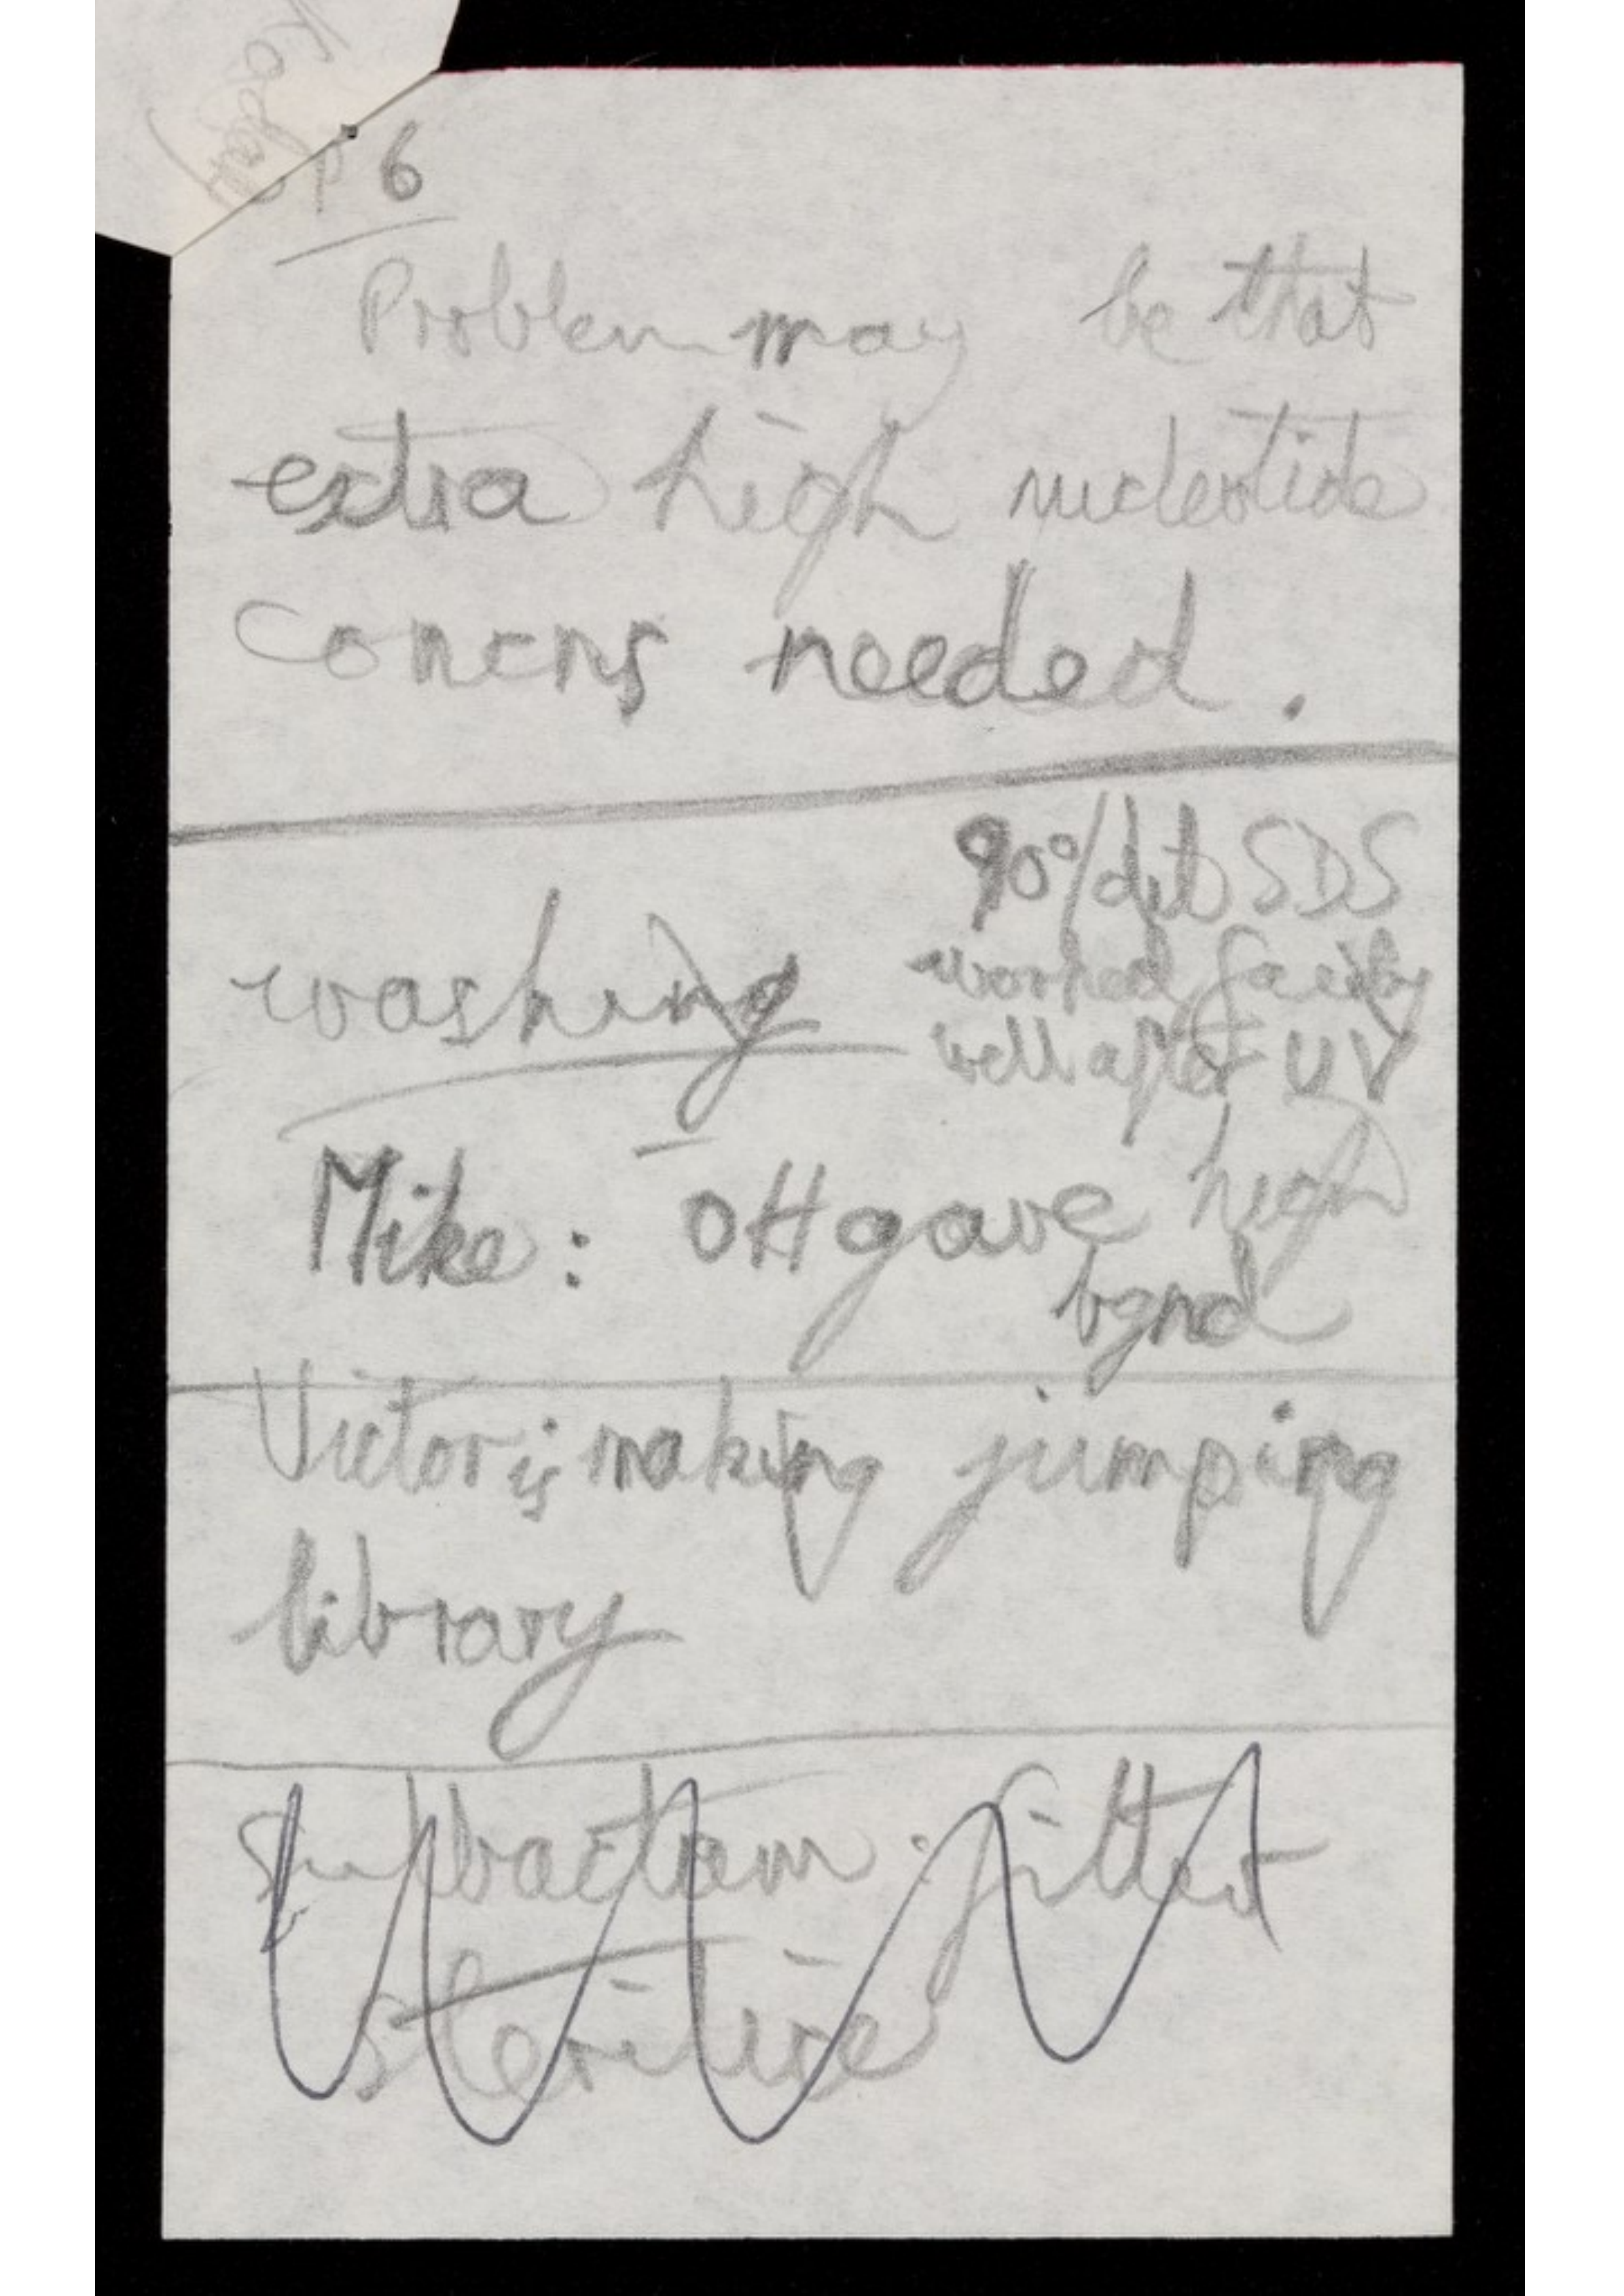 p 6
Problem may be that
extra high nucleotide
concns needed.
90°/dil SDS
worked fairly
well after UV
washing
Mike: OH⁻ gave high
bgnd
Victor is making jumping
library
filter
sterilise